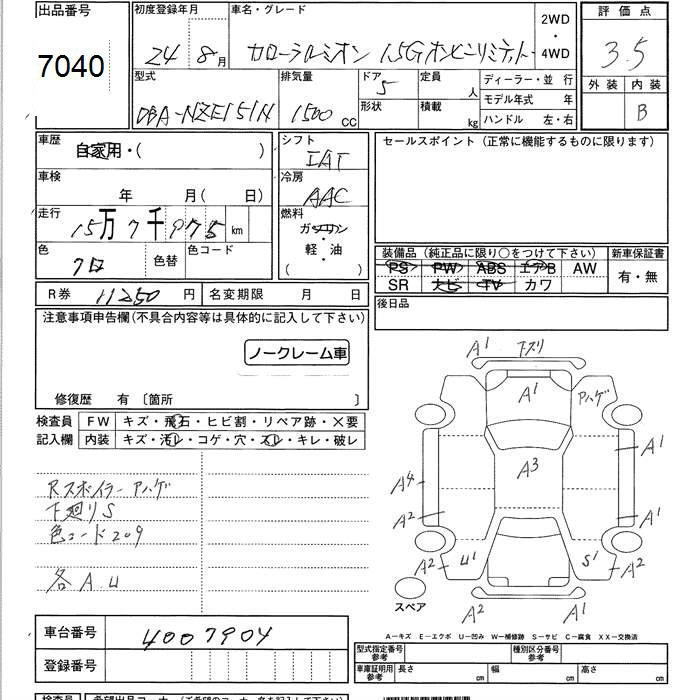 出品番号
7040
初度登録年月
24 8月
車名・グレード
カローラルミオン 1.5Gオンビーリミテット
2WD
・
4WD
評価点
3.5
外装 内装
B
型式
DBA-NZE151N
排気量
1500 cc
ドア
5
形状
定員
人
積載
kg
ディーラー・並 行
モデル年式 年
ハンドル 左・右
車歴
自家用・( )
車検
年 月( 日)
走行
15万7千975km
色
クロ
色替
色コード
シフト
IAT
冷房
AAC
燃料
ガソリン
・
軽・油
( )
セールスポイント (正常に機能するものに限ります)
装備品 (純正品に限り○をつけて下さい)
PS PW ABS エアB AW
SR ナビ TV カワ
新車保証書
有・無
後日品
R券 11250 円
名変期限 月 日
注意事項申告欄(不具合内容等は具体的に記入して下さい)
ノークレーム車
修復歴 有 〔箇所 〕
検査員
記入欄
FW キズ・飛石・ヒビ割・リペア跡・×要
内装 キズ・汚レ・コゲ・穴・スレ・キレ・破レ
Rスポイラー Aハゲ
下廻りS
色コード209
各A.U
A1 下スリ
A1
Aハゲ
A1
A3
A4
A2
A1
U1
S1
A2
A2
スペア
A2
A1
A―キズ E―エクボ U―凹み W―補修跡 S―サビ C―腐食 XX―交換済
車台番号
4007904
登録番号
型式指定番号
参考
種別区分番号
参考
車庫証明用
参考
長さ cm
幅 cm
高さ cm